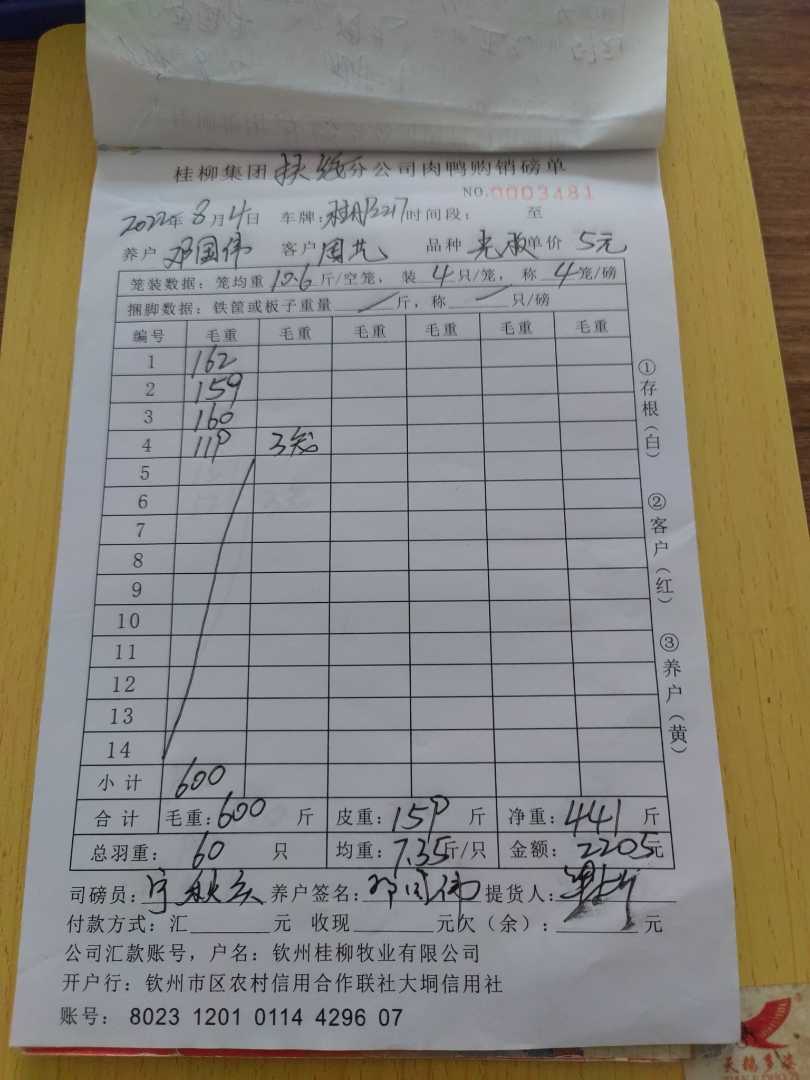 桂柳集团扶绥分公司肉鸭购销磅单
NO.0003481
2022年8月4日 车牌: 时间段: 至
养户 邓国伟 客户 周 品种 单价 5元
笼装数据:笼均重10.6斤/空笼,装4只/笼,称4笼/磅
捆脚数据:铁筐或板子重量 斤,称 只/磅
编号 毛重 毛重 毛重 毛重 毛重 毛重
1 162
2 159
3 160
4 119 3笼
5
6
7
8
9
10
11
12
13
14
小计 600
合计 毛重:600 斤 皮重:159 斤 净重:441 斤
总羽重: 60 只 均重:7.35斤/只 金额:2205元
司磅员: 养户签名:邓国伟 提货人:
付款方式:汇 元 收现 元欠(余): 元
公司汇款账号,户名:钦州桂柳牧业有限公司
开户行:钦州市区农村信用合作联社大垌信用社
账号: 8023 1201 0114 4296 07
①存根(白)
②客户(红)
③养户(黄)